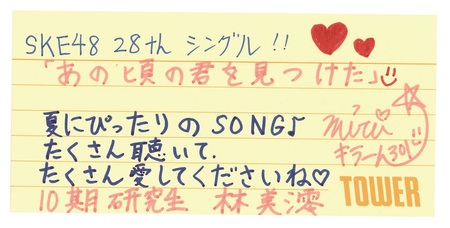 SKE48 28th シングル!!
「あの頃の君を見つけた」
夏にぴったりのSONG♪
たくさん聴いて.
たくさん愛してくださいね♡
10期研究生 林美澪
miri
TOWER